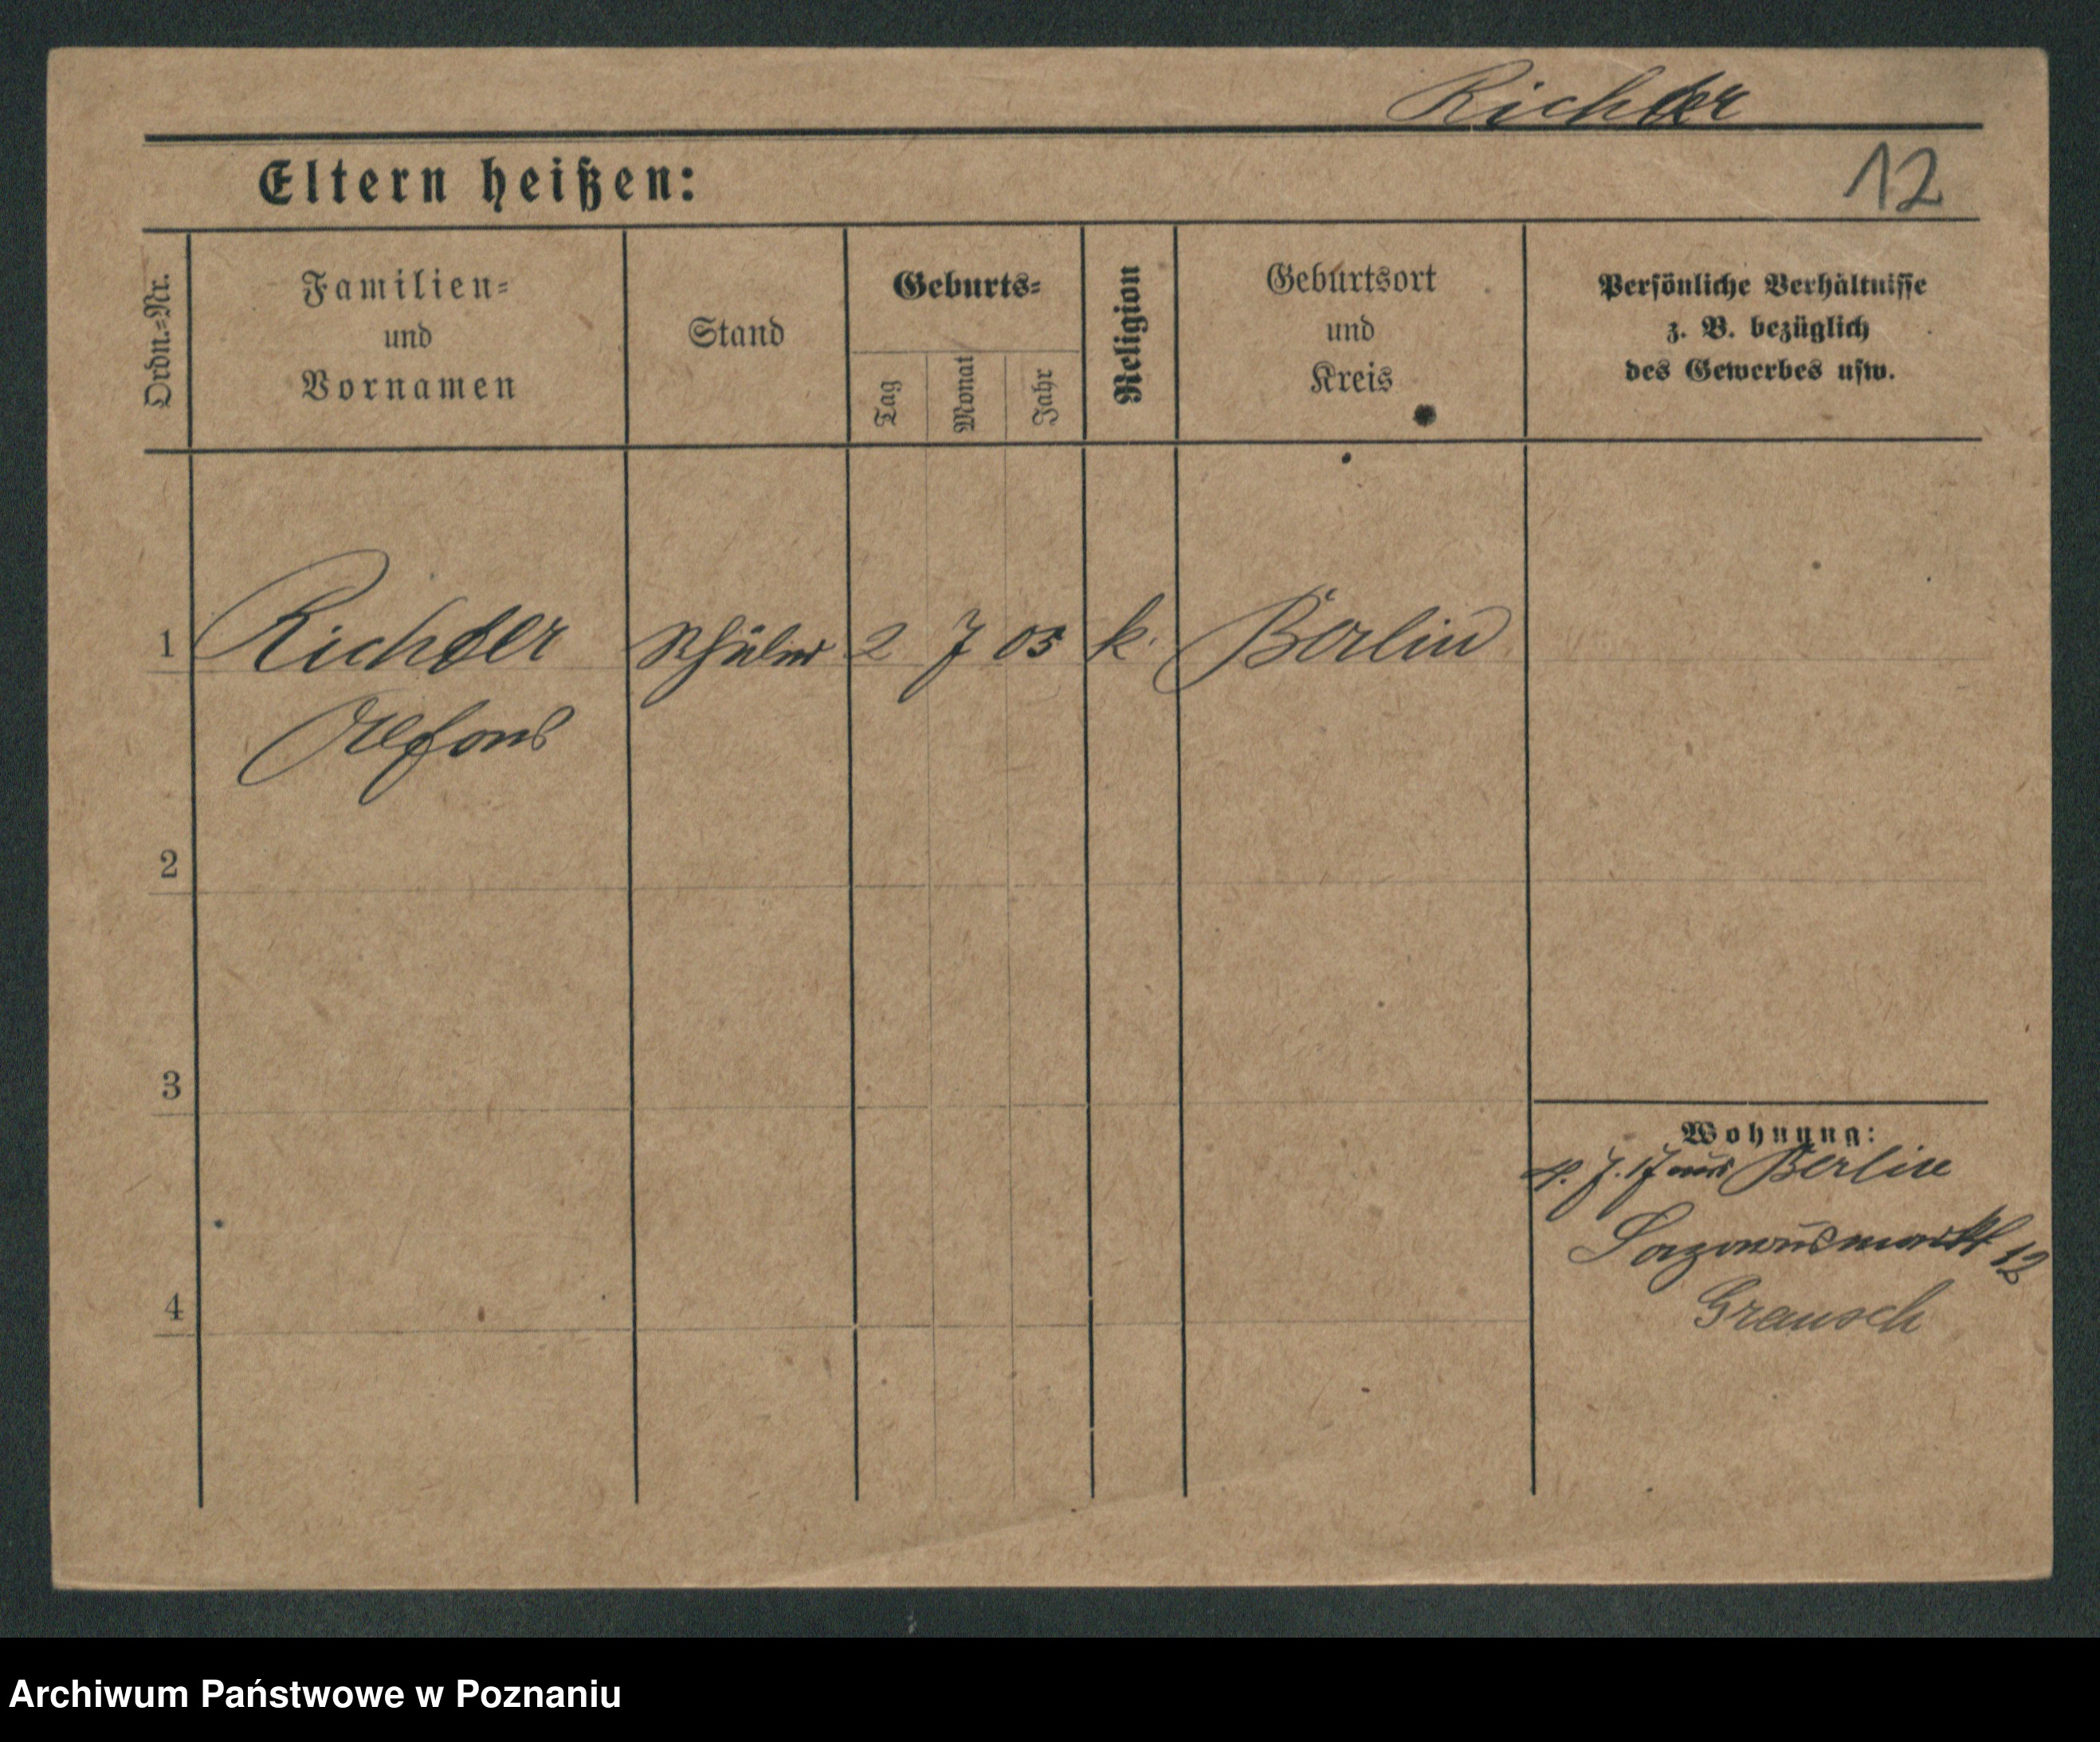 Richter
Eltern heißen:
12
Ordn.=Nr.
Familien=
und
Vornamen
Stand
Geburts=
Tag
Monat
Jahr
Religion
Geburtsort
und
Kreis
Persönliche Verhältnisse
z. B. bezüglich
des Gewerbes usw.
1 Richter Schüler 2 7 05 k. Berlin
Alfons
2
3
Wohnung:
4. 7. 17 aus Berlin
Lazarusmarkt 12
Grausch
4
Archiwum Państwowe w Poznaniu